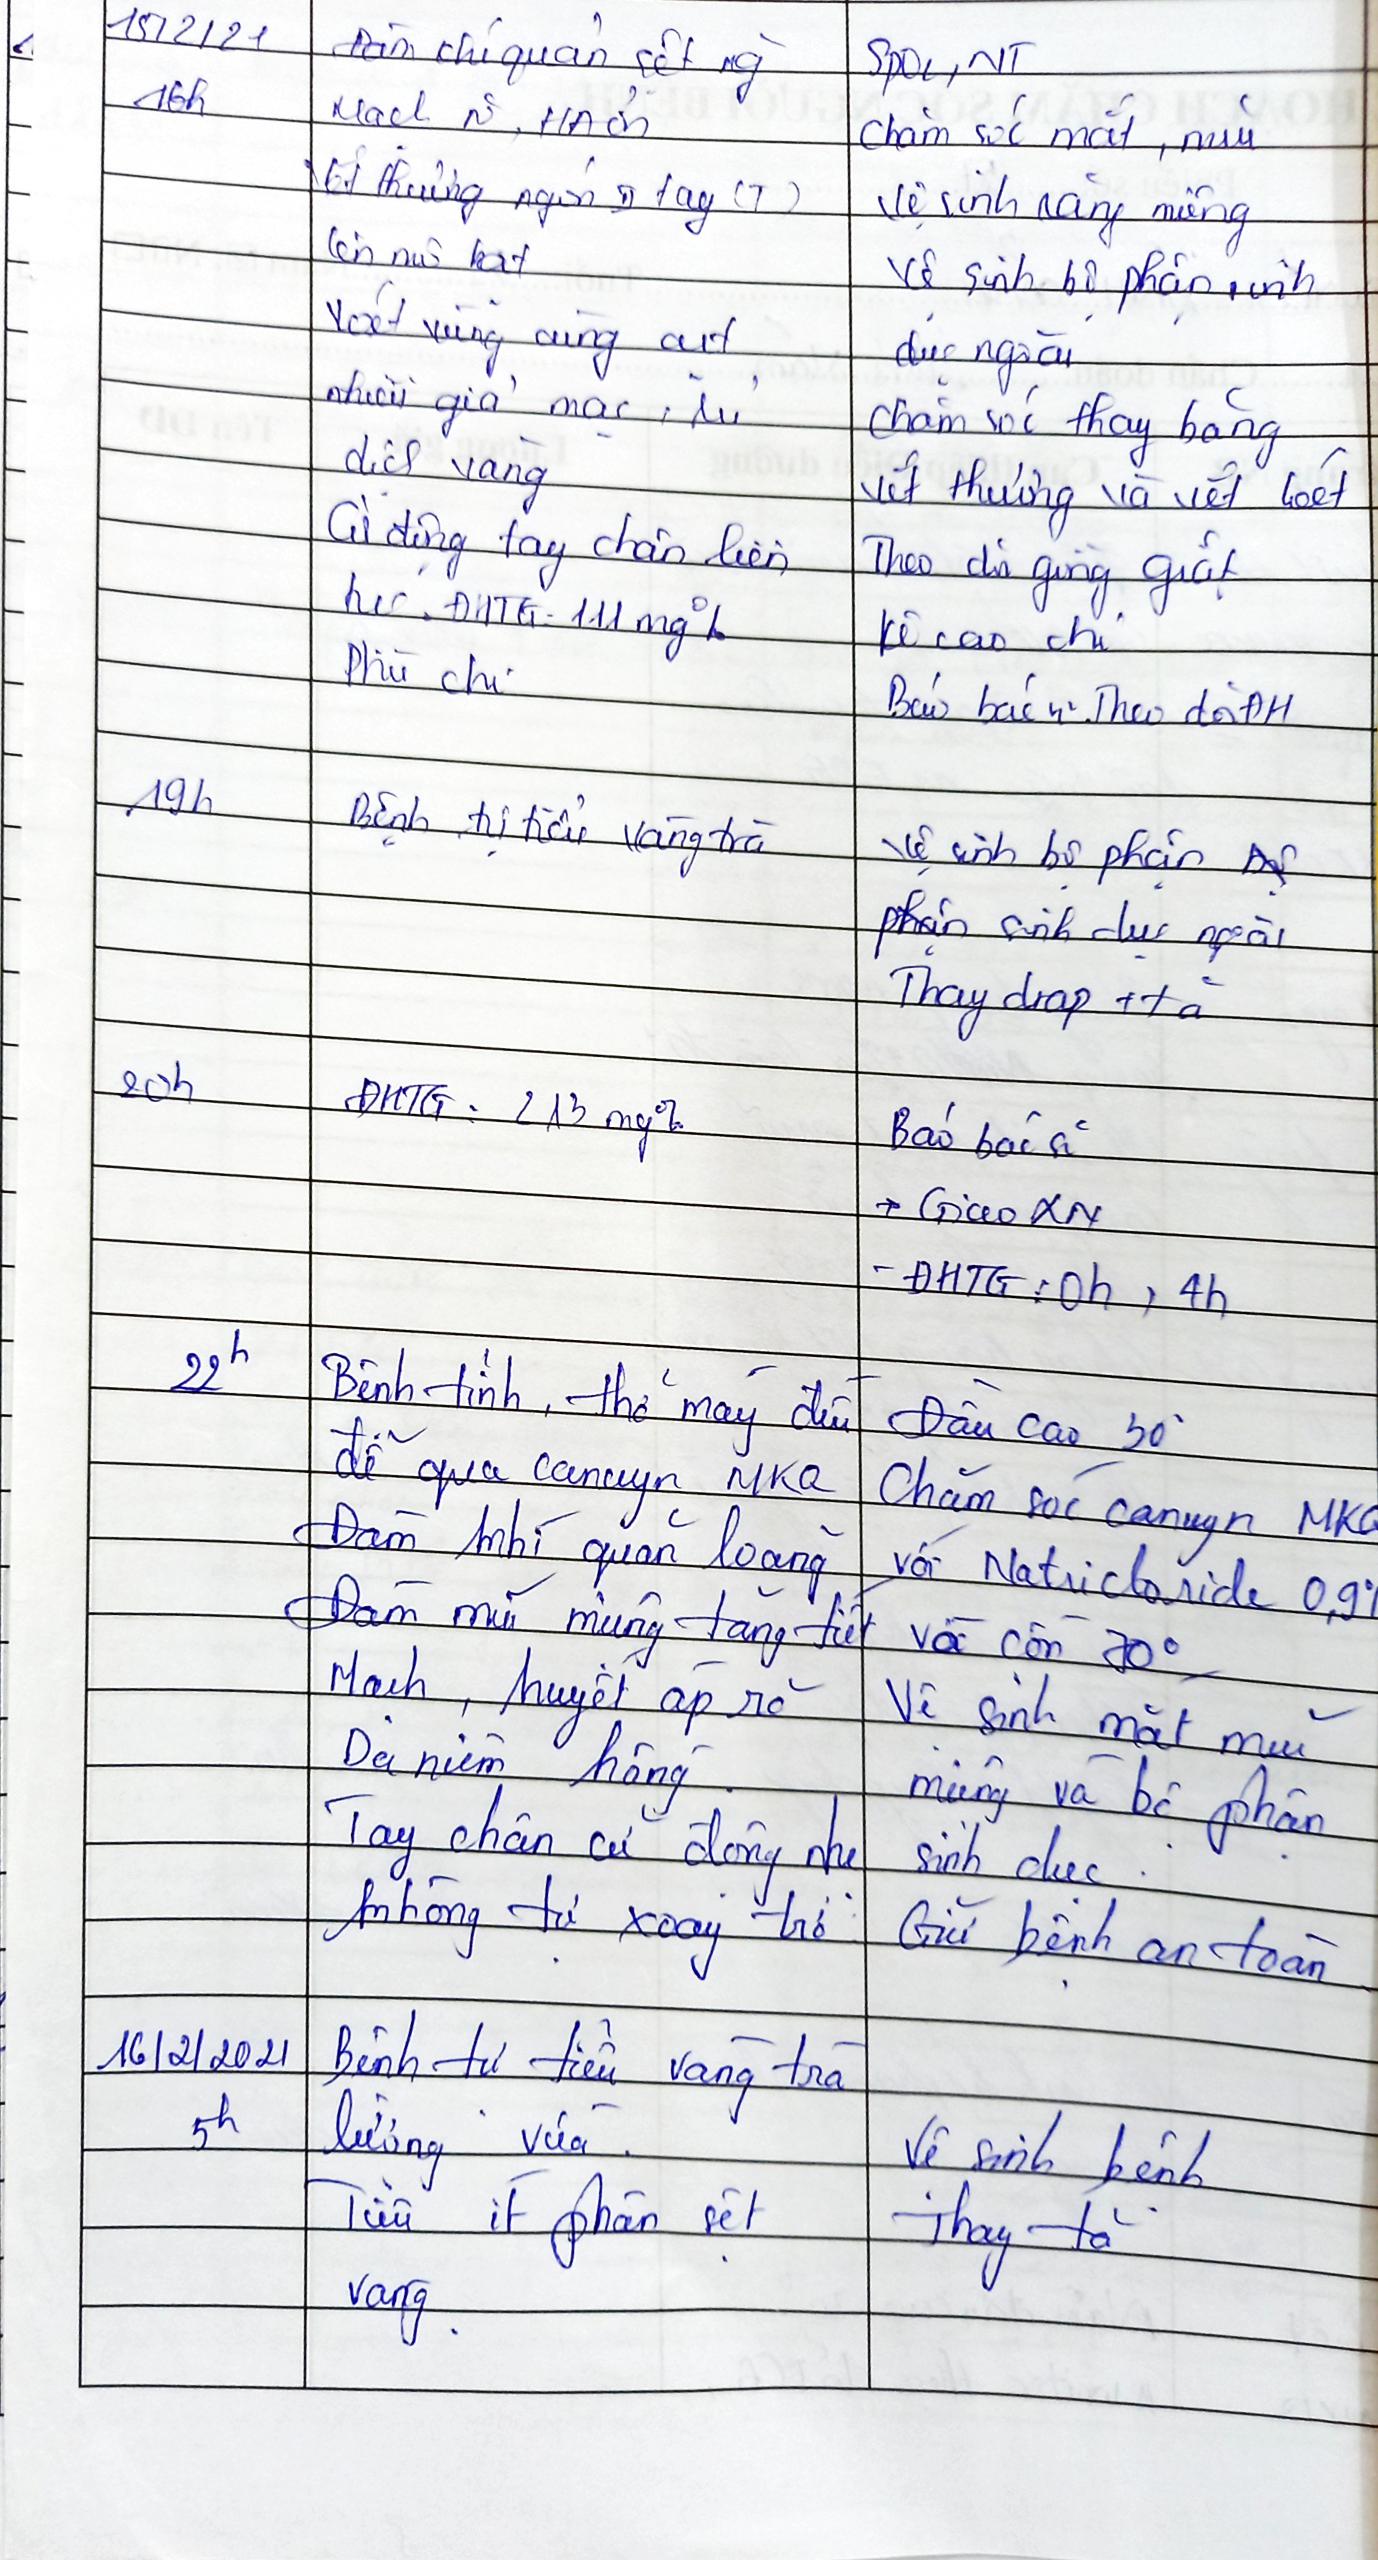 15/2/21
16h
Đàm khí quản sệt ng
Mạch rõ, HA ổn
Vết thương ngón II tay (T)
lên mô hạt
Loét vùng cùng cụt
nhiều giả mạc, rỉ
dịch vàng
Cử động tay chân liên
tục. ĐHTG: 111 mg%
Phù chi
SpO2, NT
Chăm sóc mắt, mũi
Vệ sinh răng miệng
Vệ sinh bộ phận sinh
dục ngoài
Chăm sóc thay băng
vết thương và vết loét
Theo dõi gồng giật
Kê cao chi
Báo bác sĩ. Theo dõi ĐH
19h
Bệnh tự tiểu vàng trà
Vệ sinh bộ phận
phận sinh dục ngoài
Thay drap + tã
20h
ĐHTG: 213 mg%
Báo bác sĩ
+ Giao XN
- ĐHTG: 0h, 4h
22h
Bệnh tỉnh, thở máy đều
dễ qua canuyn MKQ
Đàm khí quản loãng
Đàm mũi miệng tăng tiết
Mạch, huyết áp rõ
Da niêm hồng.
Tay chân cử động nhẹ
không tự xoay trở
Đầu cao 30°
Chăm sóc canuyn MKQ
với Natricloride 0,9%
và cồn 70°
Vệ sinh mắt mũi
miệng và bộ phận
sinh dục.
Giữ bệnh an toàn
16/2/2021
5h
Bệnh tự tiểu vàng trà
lượng vừa.
Tiêu ít phân sệt
vàng.
Vệ sinh bệnh
Thay tã